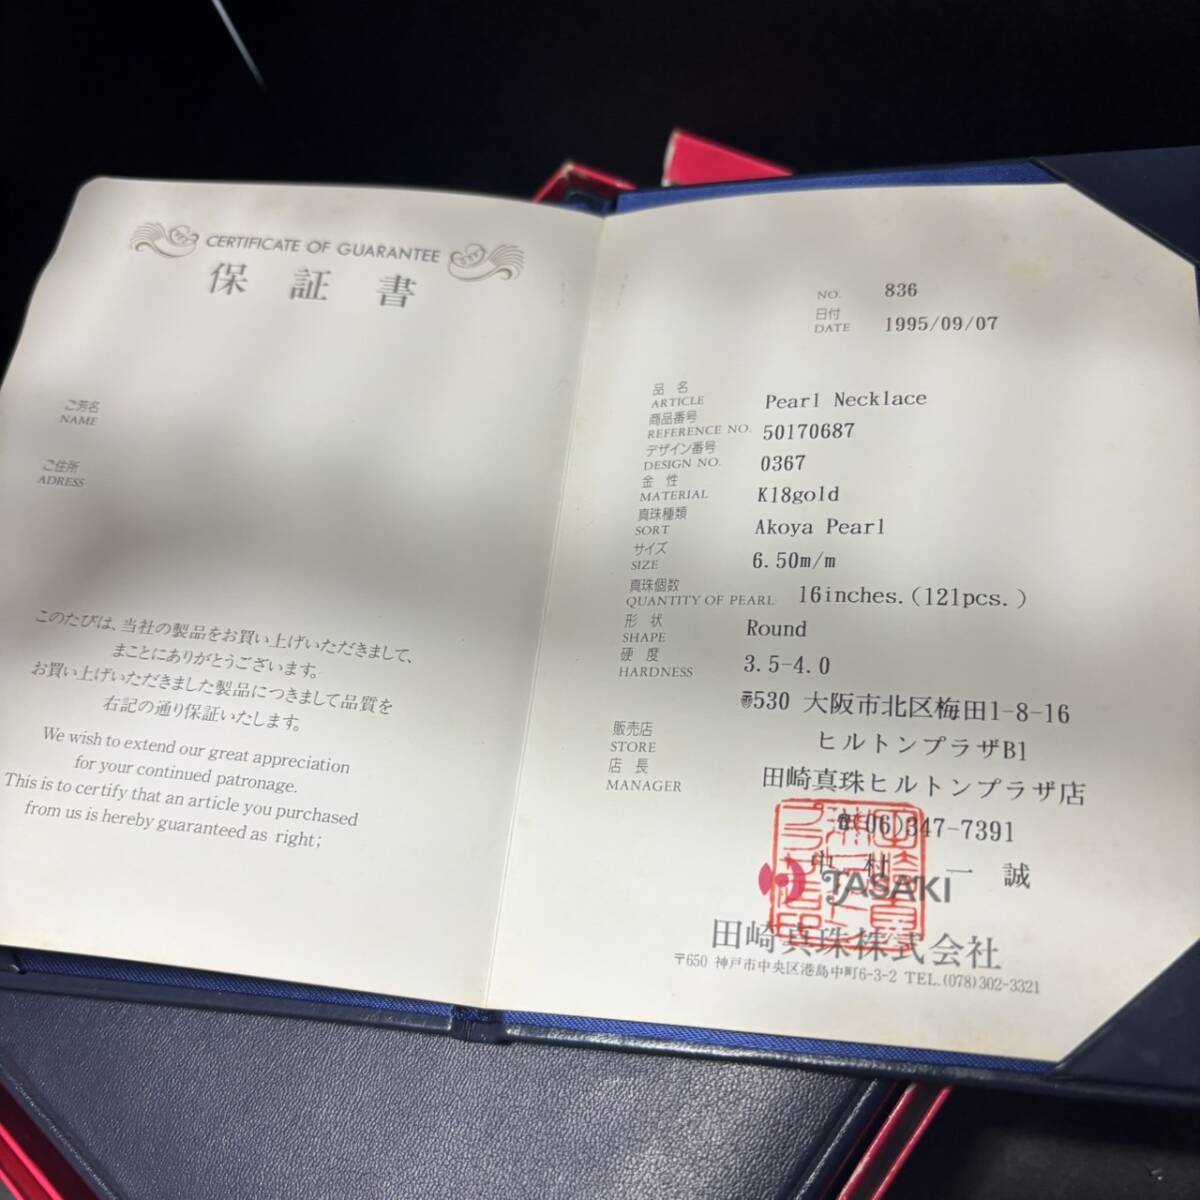 CERTIFICATE OF GUARANTEE
保 証 書
ご芳名
NAME
ご住所
ADRESS
このたびは、当社の製品をお買い上げいただきまして、
まことにありがとうございます。
お買い上げいただきました製品につきまして品質を
右記の通り保証いたします。
We wish to extend our great appreciation
for your continued patronage.
This is to certify that an article you purchased
from us is hereby guaranteed as right;
NO. 836
日付
DATE 1995/09/07
品 名
ARTICLE Pearl Necklace
商品番号
REFERENCE NO. 50170687
デザイン番号
DESIGN NO. 0367
金 性
MATERIAL K18gold
真珠種類
SORT Akoya Pearl
サイズ
SIZE 6.50m/m
真珠個数
QUANTITY OF PEARL 16inches.(121pcs.)
形 状
SHAPE Round
硬 度
HARDNESS 3.5-4.0
〠530 大阪市北区梅田1-8-16
販売店
STORE ヒルトンプラザB1
店 長
MANAGER 田崎真珠ヒルトンプラザ店
☎(06)347-7391
中 村 一 誠
TASAKI
田崎真珠株式会社
〒650 神戸市中央区港島中町6-3-2 TEL.(078)302-3321